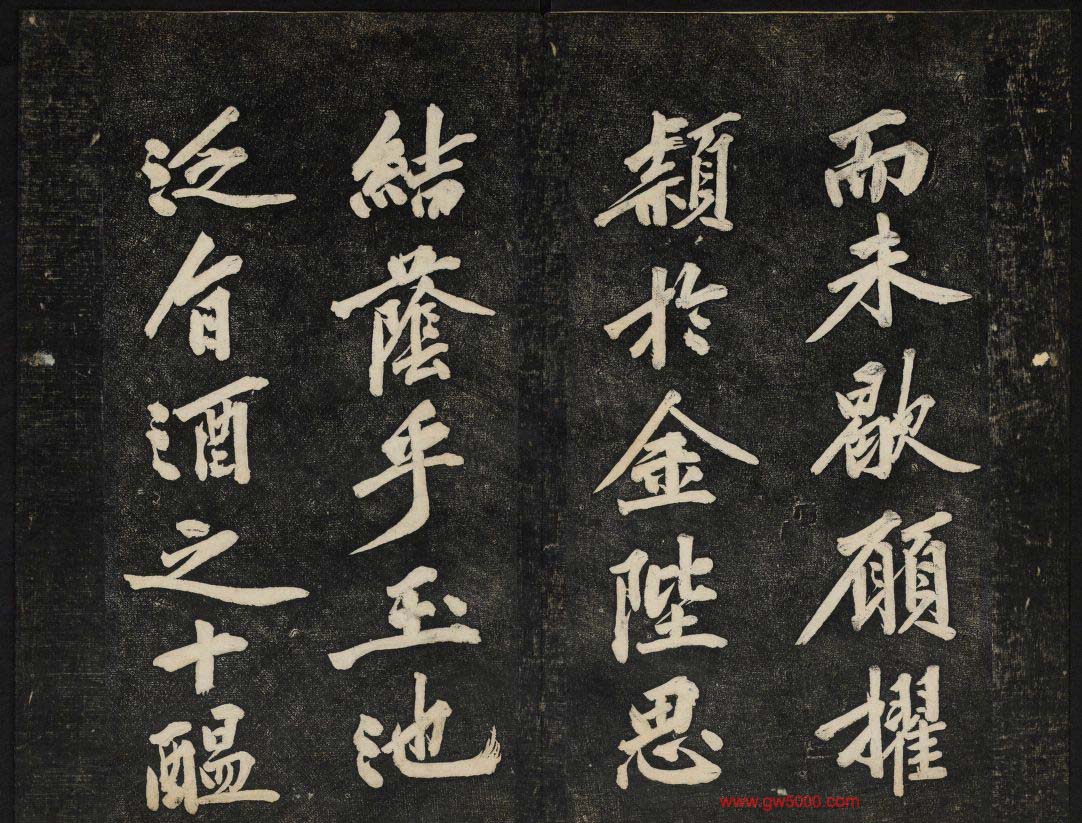 而未歇願擢
頴於金陛思
結蔭乎玉池
泛旨酒之十醖
www.gw5000.com